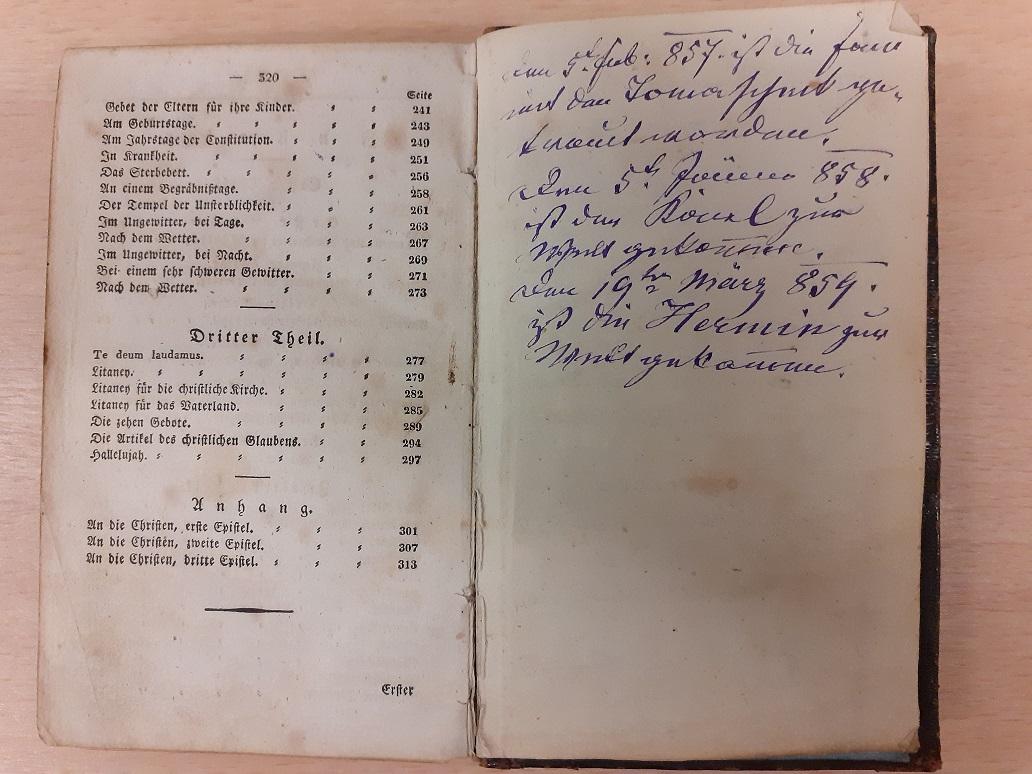 — 320 —
Seite
Gebet der Eltern für ihre Kinder. 241
Am Geburtstage. 243
Am Jahrstage der Constitution. 249
In Krankheit. 251
Das Sterbebett. 256
An einem Begräbnißtage. 258
Der Tempel der Unsterblichkeit. 261
Im Ungewitter, bei Tage. 263
Nach dem Wetter. 267
Im Ungewitter, bei Nacht. 269
Bei einem sehr schweren Gewitter. 271
Nach dem Wetter. 273
Dritter Theil.
Te deum laudamus. 277
Litaney. 279
Litaney für die christliche Kirche. 282
Litaney für das Vaterland. 285
Die zehen Gebote. 289
Die Artikel des christlichen Glaubens. 294
Hallelujah. 297
Anhang.
An die Christen, erste Epistel. 301
An die Christen, zweite Epistel. 307
An die Christen, dritte Epistel. 313
Erster
den 9t Feb: 857. ist die
mit den ge-
traut worden.
Den 5t 858.
ist der Karl zur
Welt gekommen.
Den 19ten März 859.
ist die Hermin zur
Welt gekommen.